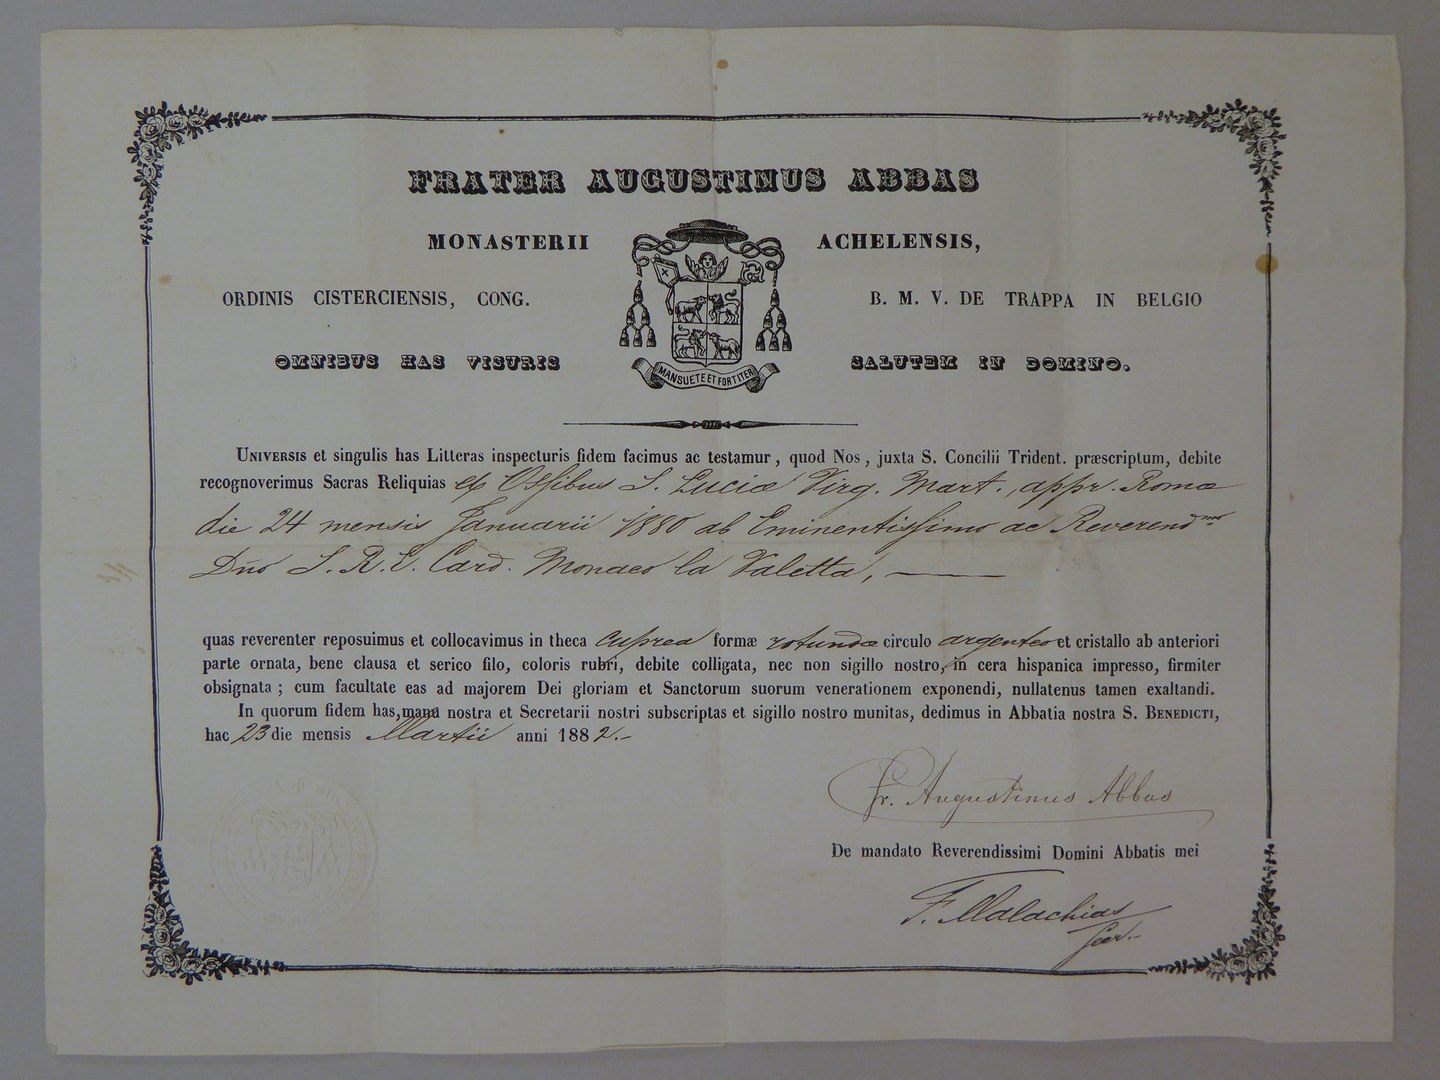 FRATER AUGUSTINUS ABBAS
MONASTERII ACHELENSIS,
ORDINIS CISTERCIENSIS, CONG. B. M. V. DE TRAPPA IN BELGIO
OMNIBUS HAS VISURIS SALUTEM IN DOMINO.
MANSUETE ET FORTITER
UNIVERSIS et singulis has Litteras inspecturis fidem facimus ac testamur, quod Nos, juxta S. Concilii Trident. præscriptum, debite
recognoverimus Sacras Reliquias ex Ossibus S. Luciæ Virg. Mart., appr. Romæ
die 24 mensis Januarii 1880 ab Eminentissimo ac Reverendmo
Dño S. R. E. Card. Monaco la Valetta, ——
quas reverenter reposuimus et collocavimus in theca cuprea formæ rotundæ circulo argenteo et cristallo ab anteriori
parte ornata, bene clausa et serico filo, coloris rubri, debite colligata, nec non sigillo nostro, in cera hispanica impresso, firmiter
obsignata ; cum facultate eas ad majorem Dei gloriam et Sanctorum suorum venerationem exponendi, nullatenus tamen exaltandi.
In quorum fidem has, manu nostra et Secretarii nostri subscriptas et sigillo nostro munitas, dedimus in Abbatia nostra S. BENEDICTI,
hac 23 die mensis Martii anni 1882.-
Fr. Augustinus Abbas
De mandato Reverendissimi Domini Abbatis mei
F. Malachias
Secr.-